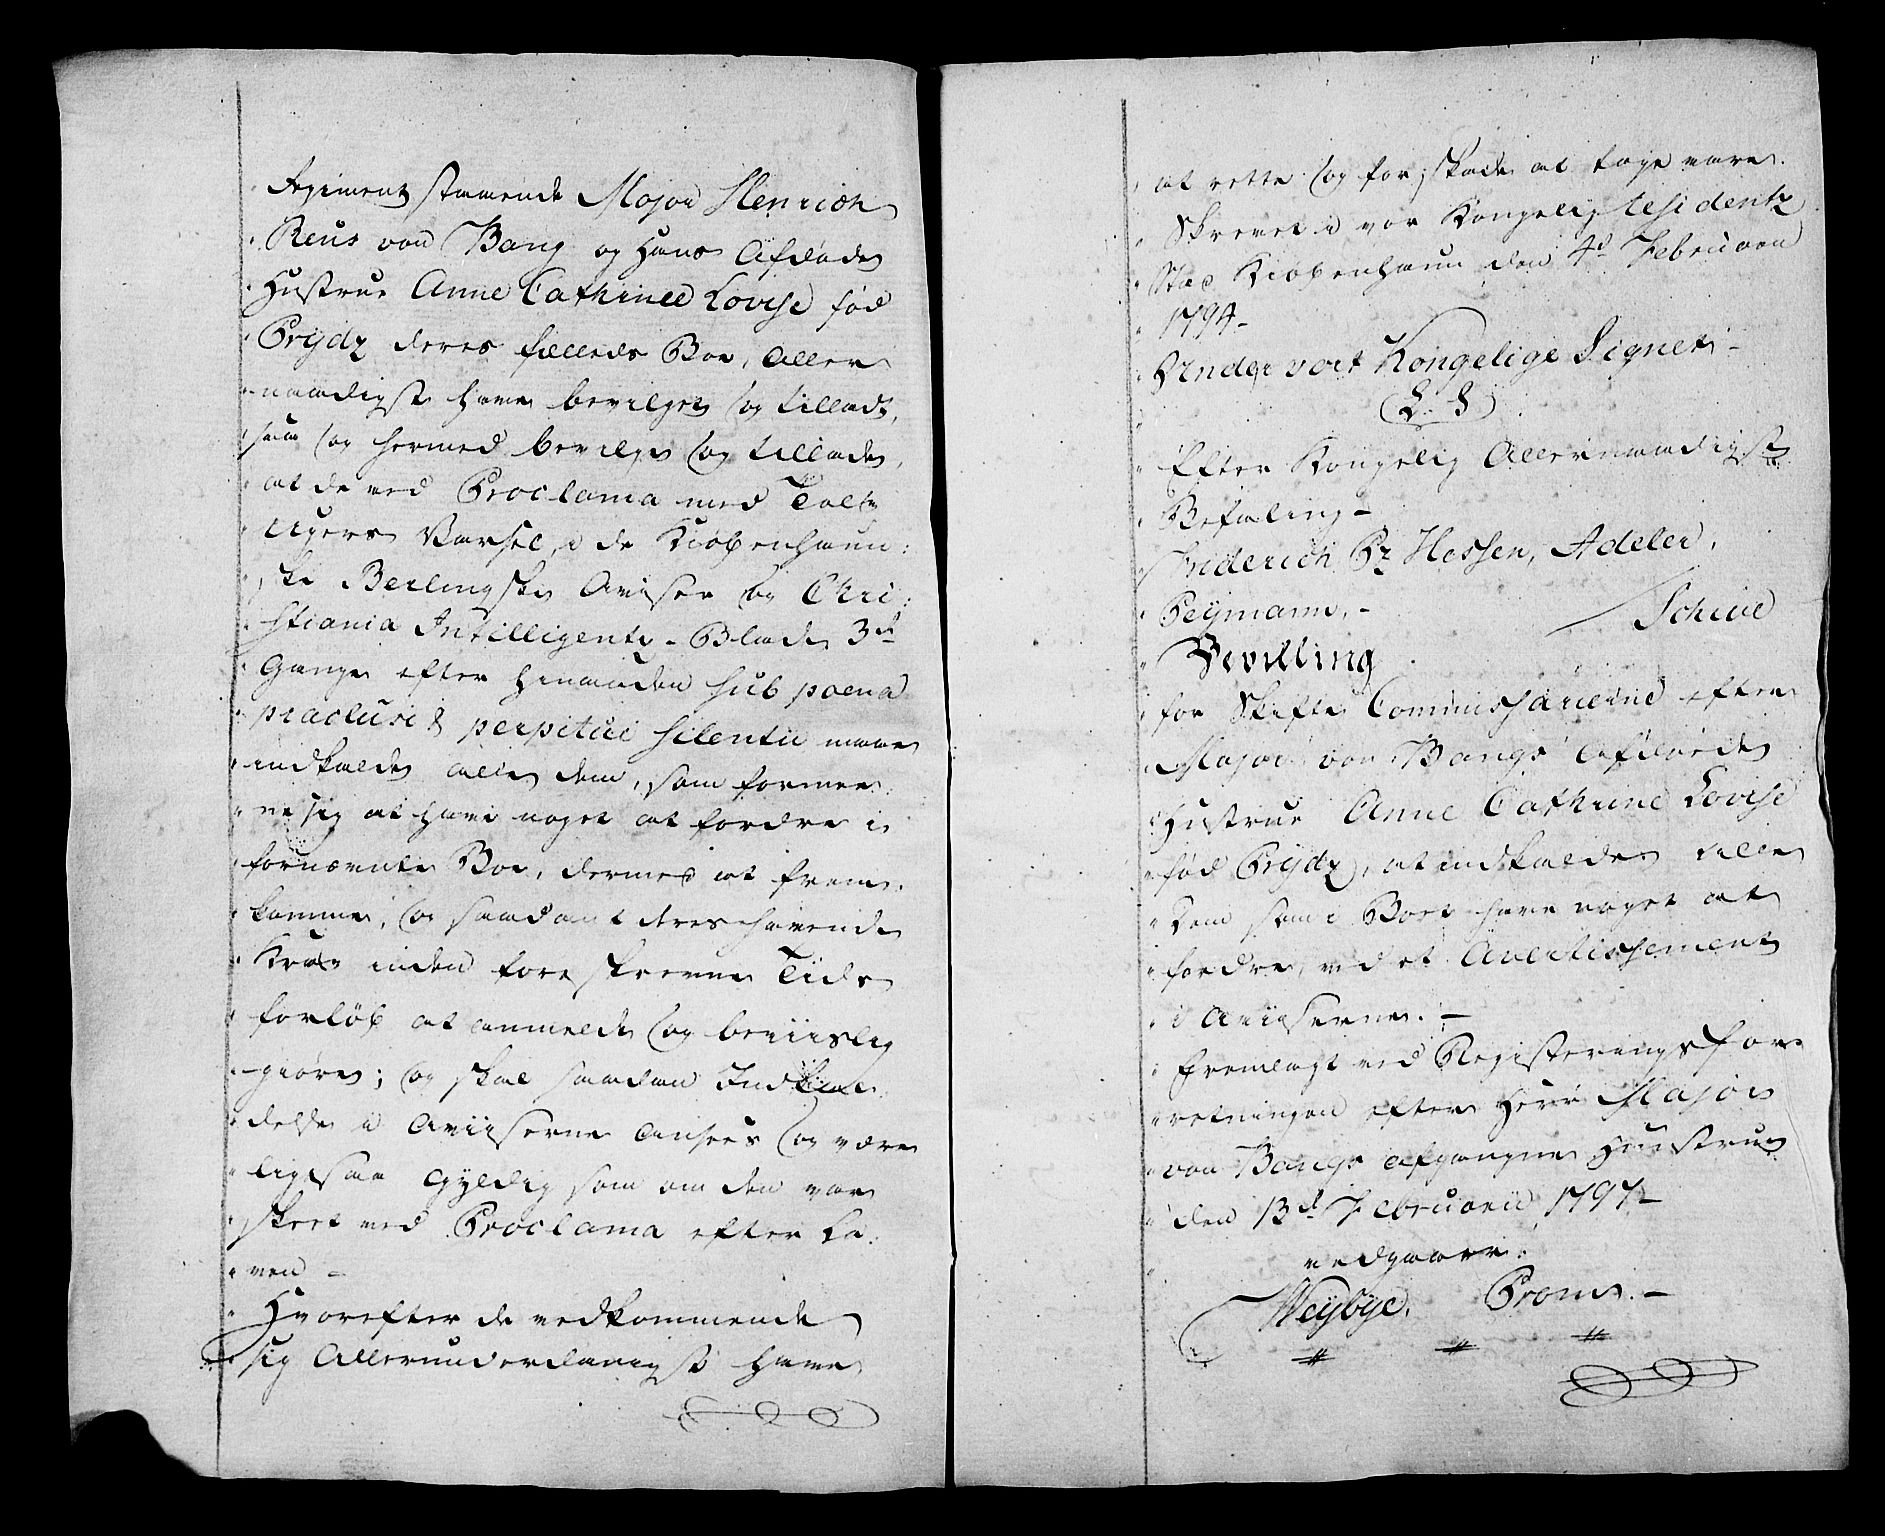 Regiment staaende Major Henrich
Reus von Bang og Hans Afdøde
Hustrue Anne Cathrine Lovise fød
Prÿdz deres fælleds Boe, Aller
naadigst have bevilget og tilladt,
saa og hermed bevilge og tillade,
at de ved Proclama med Tolv
Ugers Varsel, i de Kiøbenhavn:
ske Berlingske Aviser og Chri:
stiania Intilligentz-Blade 3de
Gange efter hinanden sub poena
præclusi & perpitui silentii maae
indkalde alle dem, som formee:
ne sig at have noget at fordre i
fornævnte Boe, dermed at frem:
komme, og saadant deres havende
Krav inden foreskrevne Tids
forløb at anmelde og beviislig
giøre; og skal saadan Indkal:
delse i Aviiserne Ansees og være
ligesaa Gyldig som om den var
skeet ved Proclama efter Lo:
ven -
Hvorefter de vedkommende
sig Allerunderdanigst have
at rette og for skade at tage vare.
Skrevet i vor Kongelig Residentz
Stad Kiøbenhavn den 4de Februarii
1794-
Under vort Kongelige Signet-
(L. S)
Efter Kongelig Allernaadigste
Befaling-
Friderich Pz Hessen, Adeler,
Peÿmann,- Schive
Bevilling
for Skifte Commissarierne efter
Major von Bangs Afdøde
Hustrue Anne Cathrine Lovise
fød Prÿdz, at indkalde alle
Dem som i Boet have noget at
fordre, ved et Avertissement
i Aviiserne.-
Fremlagt ved Registeringsfor
retningen efter Herr Major
von Bangs afgangne Hustrue
den 13de Februarii 1797-
vedgaaer.
Weÿbÿe. Prom.-